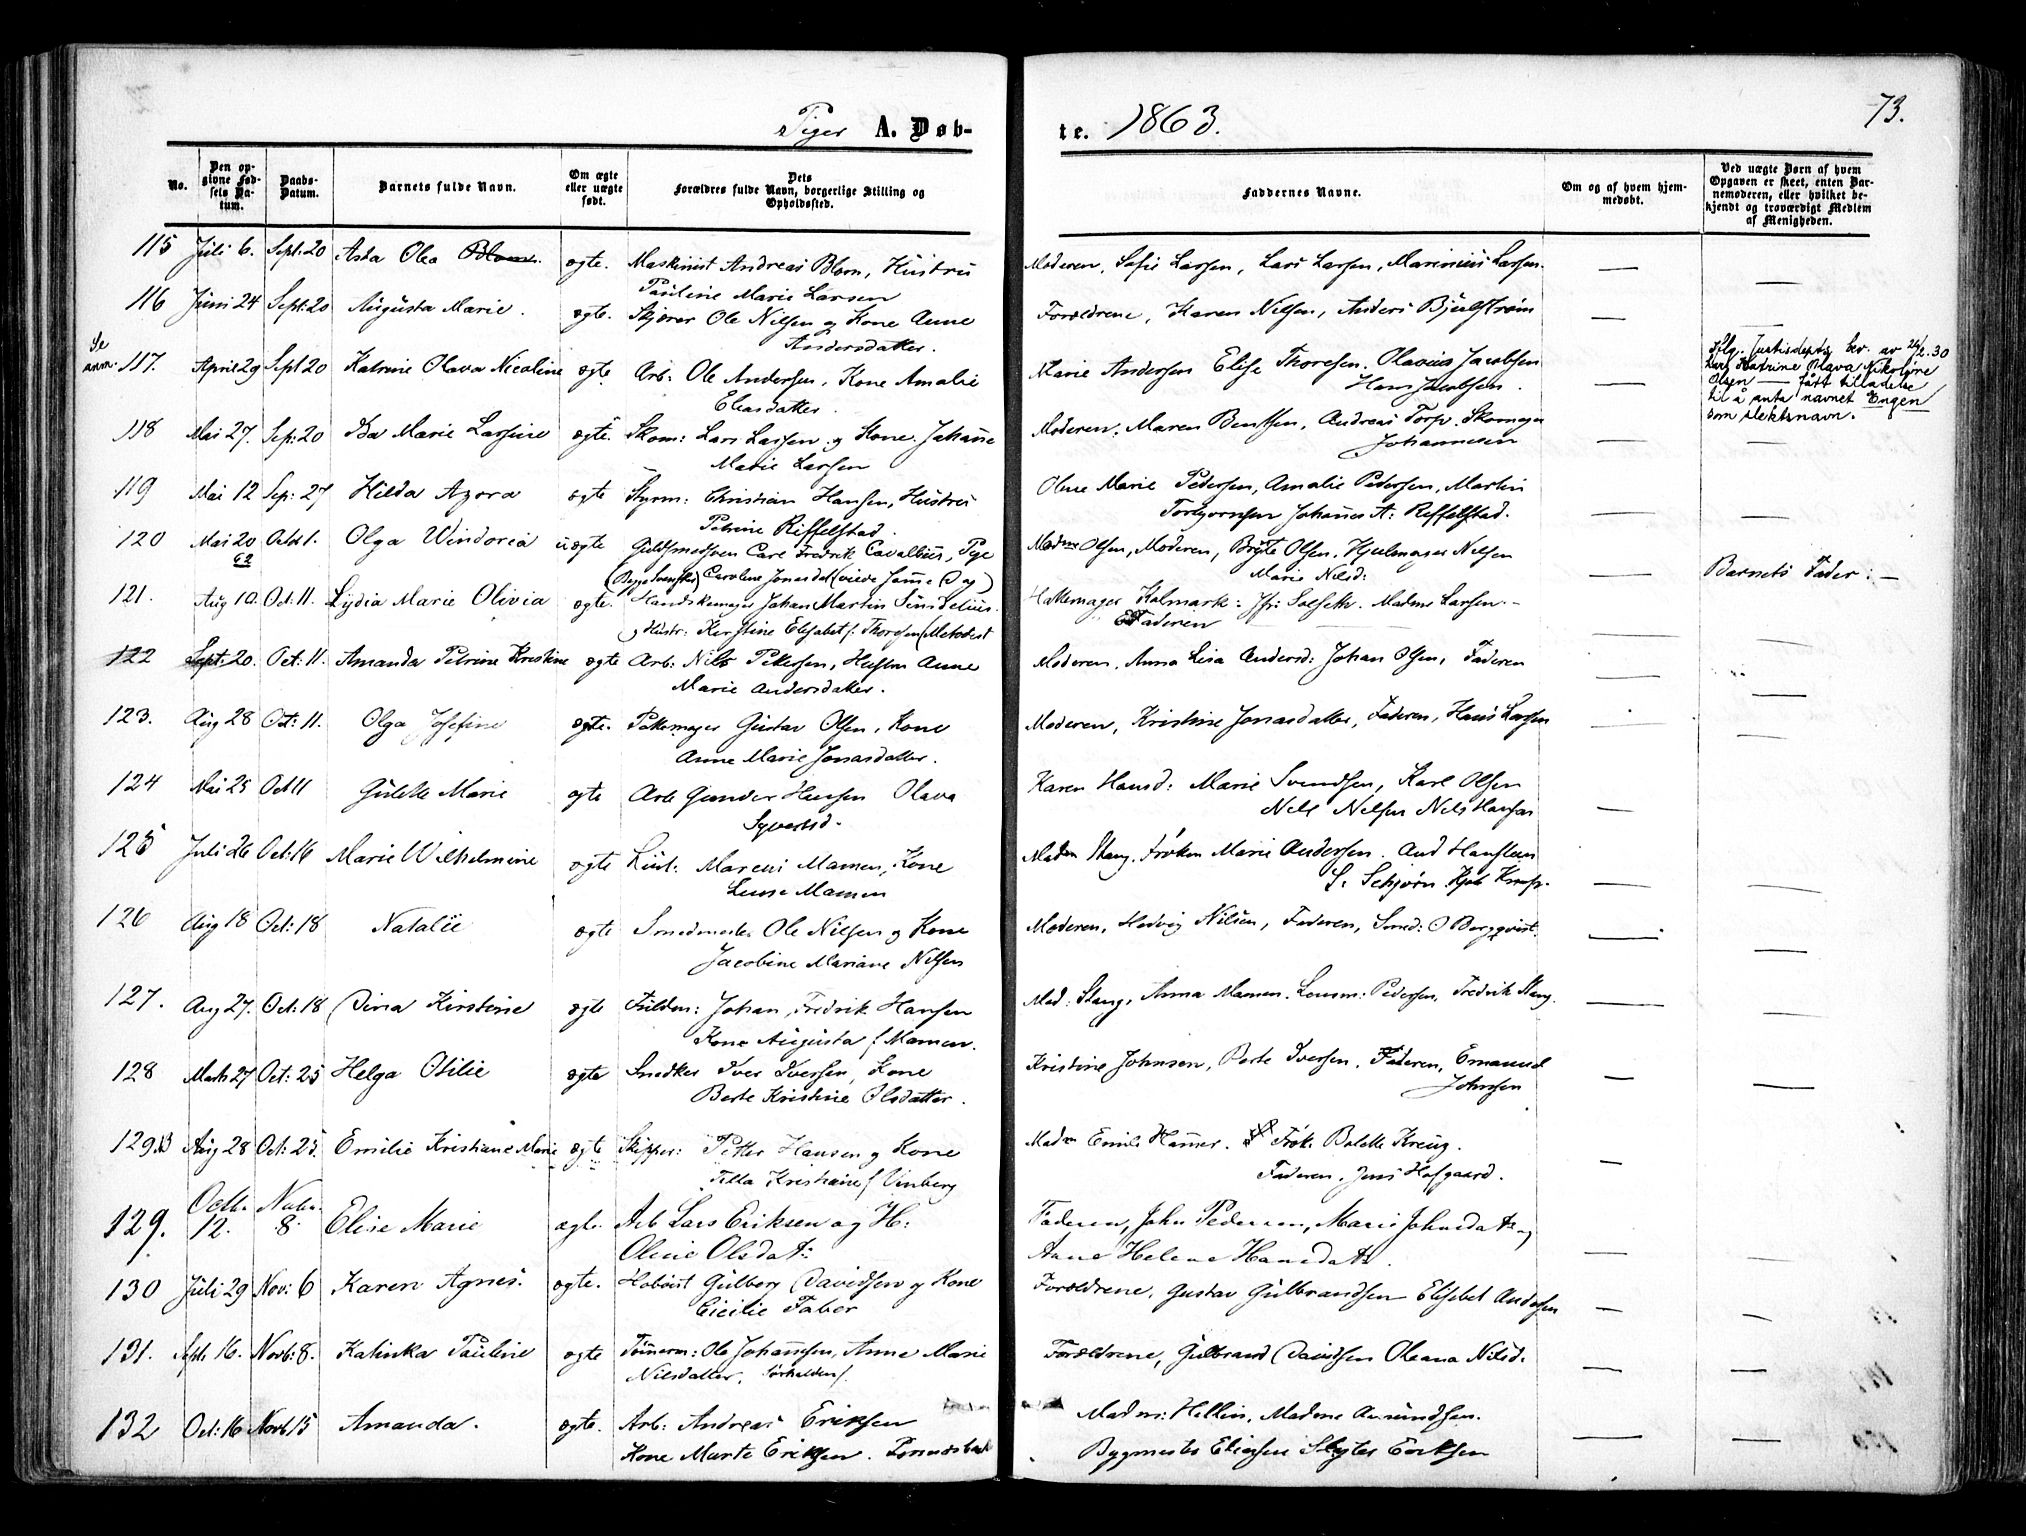 73.
Piger A. Døb-
te. 1863.
No.
Den op-
givne Fød-
sels Da-
tum.
Daabs-
Datum.
Barnets fulde Navn.
Om ægte
eller uægte
født.
Dets
Forældres fulde Navn, borgerlige Stilling og
Opholdssted.
Faddernes Navne.
Om og af hvem hjem-
medøbt.
Ved uægte Børn af hvem
Opgaven er skeet, enten Bar-
nemoderen, eller hvilket be-
kjendt og troværdigt Medlem
af Menigheden.
115 Juli 6. Sept: 20 Asta Olea Blom. ægte. Maskinist Andreas Blom, Hustru
Pauline Marie Larsen
Moderen, Sofie Larsen, Lars Larsen, Marinius Larsen.
116 Juni 24 Sept: 20 Augusta Marie. ægte. Ole Nilsen og Kone Anne
Andersdatter.
Forældrene, Karen Nilsen, Anders Bjulstrøm
Se
anm. 117. April 29 Sept 20 Katrine Olava Nicoline ægte Arb: Ole Andersen, Kone Amalie
Eliasdatter.
Marie Andersen Elise Thoresen. Olavus Jacobsen
Hans Jacobsen.
Iflg. Justisdepts bev. av 24/2.30
har Katrine Olava Nikoline
Olsen — fått tilladelse
til å anta navnet Engen
som slektsnavn.
118 Mai 27. Sep: 20 Ida Marie Larsine ægte. Skom: Lars Larsen og Kone Johanne
Marie Larsen
Moderen. Maren Bentsen, Andreas Torp. Skomager
Johannesen
119 Mai 12 Sep: 27 Hilda Azora ægte Styrm: Christian Hansen, Hustru
Petrine Riffelstad.
Oline Marie Pedersen, Amalie Pedersen, Martin
Torbjørnsen Johannes A: Reffelstad.
120 Mai 20
62 Octob 1. Olga Windoria uægte Guldsmedsven Carl Fredrik Cavallius, Pige
Caroline Jonasdat
Madme Olsen, Moderen, Birgte Olsen, Hjulmager Nelsen
Marie Nilsd:
Barnets Fader: —
121. Aug 10. Oct: 11. Lydia Marie Olivia ægte. Handskemager Johan Martin Sundelius
og Hustr: Kerstine Elisabet f. Thoresen (Metodist
Hattemager Kolmark: Jfr: Solseth. Madme Larsen. -
Faderen
122 Sept: 20. Oct: 11. Amanda Petrine Kristine ægte Arb: Nils Pettersen, Hustru Anne
Marie Andersdatter.
Moderen, Anna Lisa Andersd: Johan Olsen, Faderen
123. Aug 28 Oct: 11. Olga Josefine ægte. Pottemager Gustav Olsen, Kone
Anne Marie Jonasdatter.
Moderen, Kristine Jonasdatter, Faderen, Hans Larsen
124 Mai 25 Oct 11 Gulette Marie ægte Arb Gunder Hansen Olava
Syvertsd.
Karen Hansd: Marie Svendsen, Karl Olsen
Nels Nelsen Nels Hansen
125 Juli 26 Oct: 16 Marie Wilhelmine ægte Lieut: Marcus Mamen, Kone
Lense Mamen
Madm Stang. Frøken Marie Andersen. And
S. Schjørn
126 Aug 18 Oct: 18 Natalie ægte Smedmester Ole Nilsen og Kone
Jacobine Mariane Nilsen
Moderen, Hedvig Nilsen, Faderen, Smed: O Bergqvist.
127. Aug 27. Oct: 18 Dina Kirstine ægte Fuldm: Johan Fredrik Hansen
Kone Augusta f Mamen.
Mad: Stang, Anna Mamen. Lensm: Pedersen, Fredrik Stang.
128 Marts 27 Oct: 25 Helga Otilie ægte Snedker Iver Iversen, Kone
Berte Kristine Olsdatter.
Kristine Johnsen, Berte Iversen. Faderen, Emanuel
Johnsen
129.B Aug 28 Oct: 25. Emilie Kristiane Marie ægte Skipper: Petter Hansen og Kone
Kristiane f Vinberg
Madm Emili Hamer. Frøk: Bolette Kreug.
Faderen. Jens Hofgaard.
129. Octb. 12. Novbr. 8. Elise Marie ægte. Arb Lars Eriksen og H:
Oline Olsdat:
Faderen, John Pedersen, Marie Johnsdatr og
Anne Helene Hansdatr.
130 Juli 29 Nov: 6 Karen Agnes. ægte. Hoboist Gulborg Davidsen og Kone
Cicilie Faber
Forældrene, Gustav Gulbrandsen Elisebet Andersen
131. Septb 16. Novb: 8. Katinka Pauline ægte Tømerm: Ole Johannsen, Anne Marie
Nilsdatter.
Forældrene, Gulbrand Davidsen Oleana Nilsd.
132 Oct: 16 Novb 15 Amanda. ægte. Arb: Andreas Eriksen
Kone Marte Eriksen.
Madm: Hellin, Madme Amundsen.
Bygmester Eliasen Slagter Eriksen